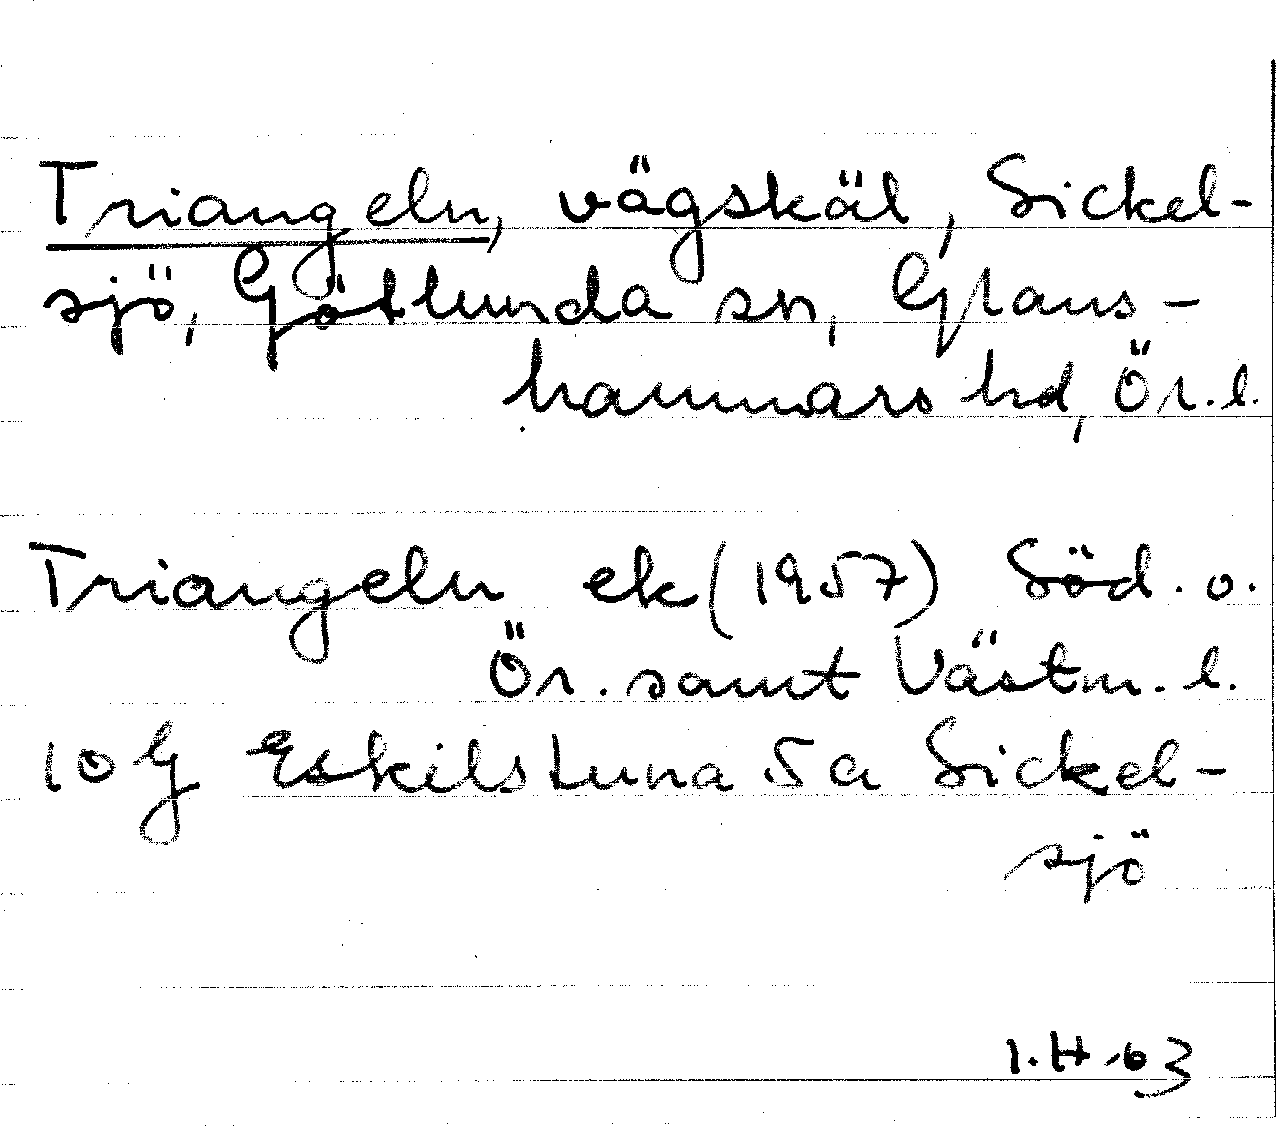 Triangeln, vägskäl, Sickel-
sjö, Götlunda sn, Glans-
hammars hd, Ör. l.
Triangeln ek (1957) Söd. o.
Ör. samt Västm. l.
10 G Eskilstuna 5a Sickel-
sjö
I.H-63